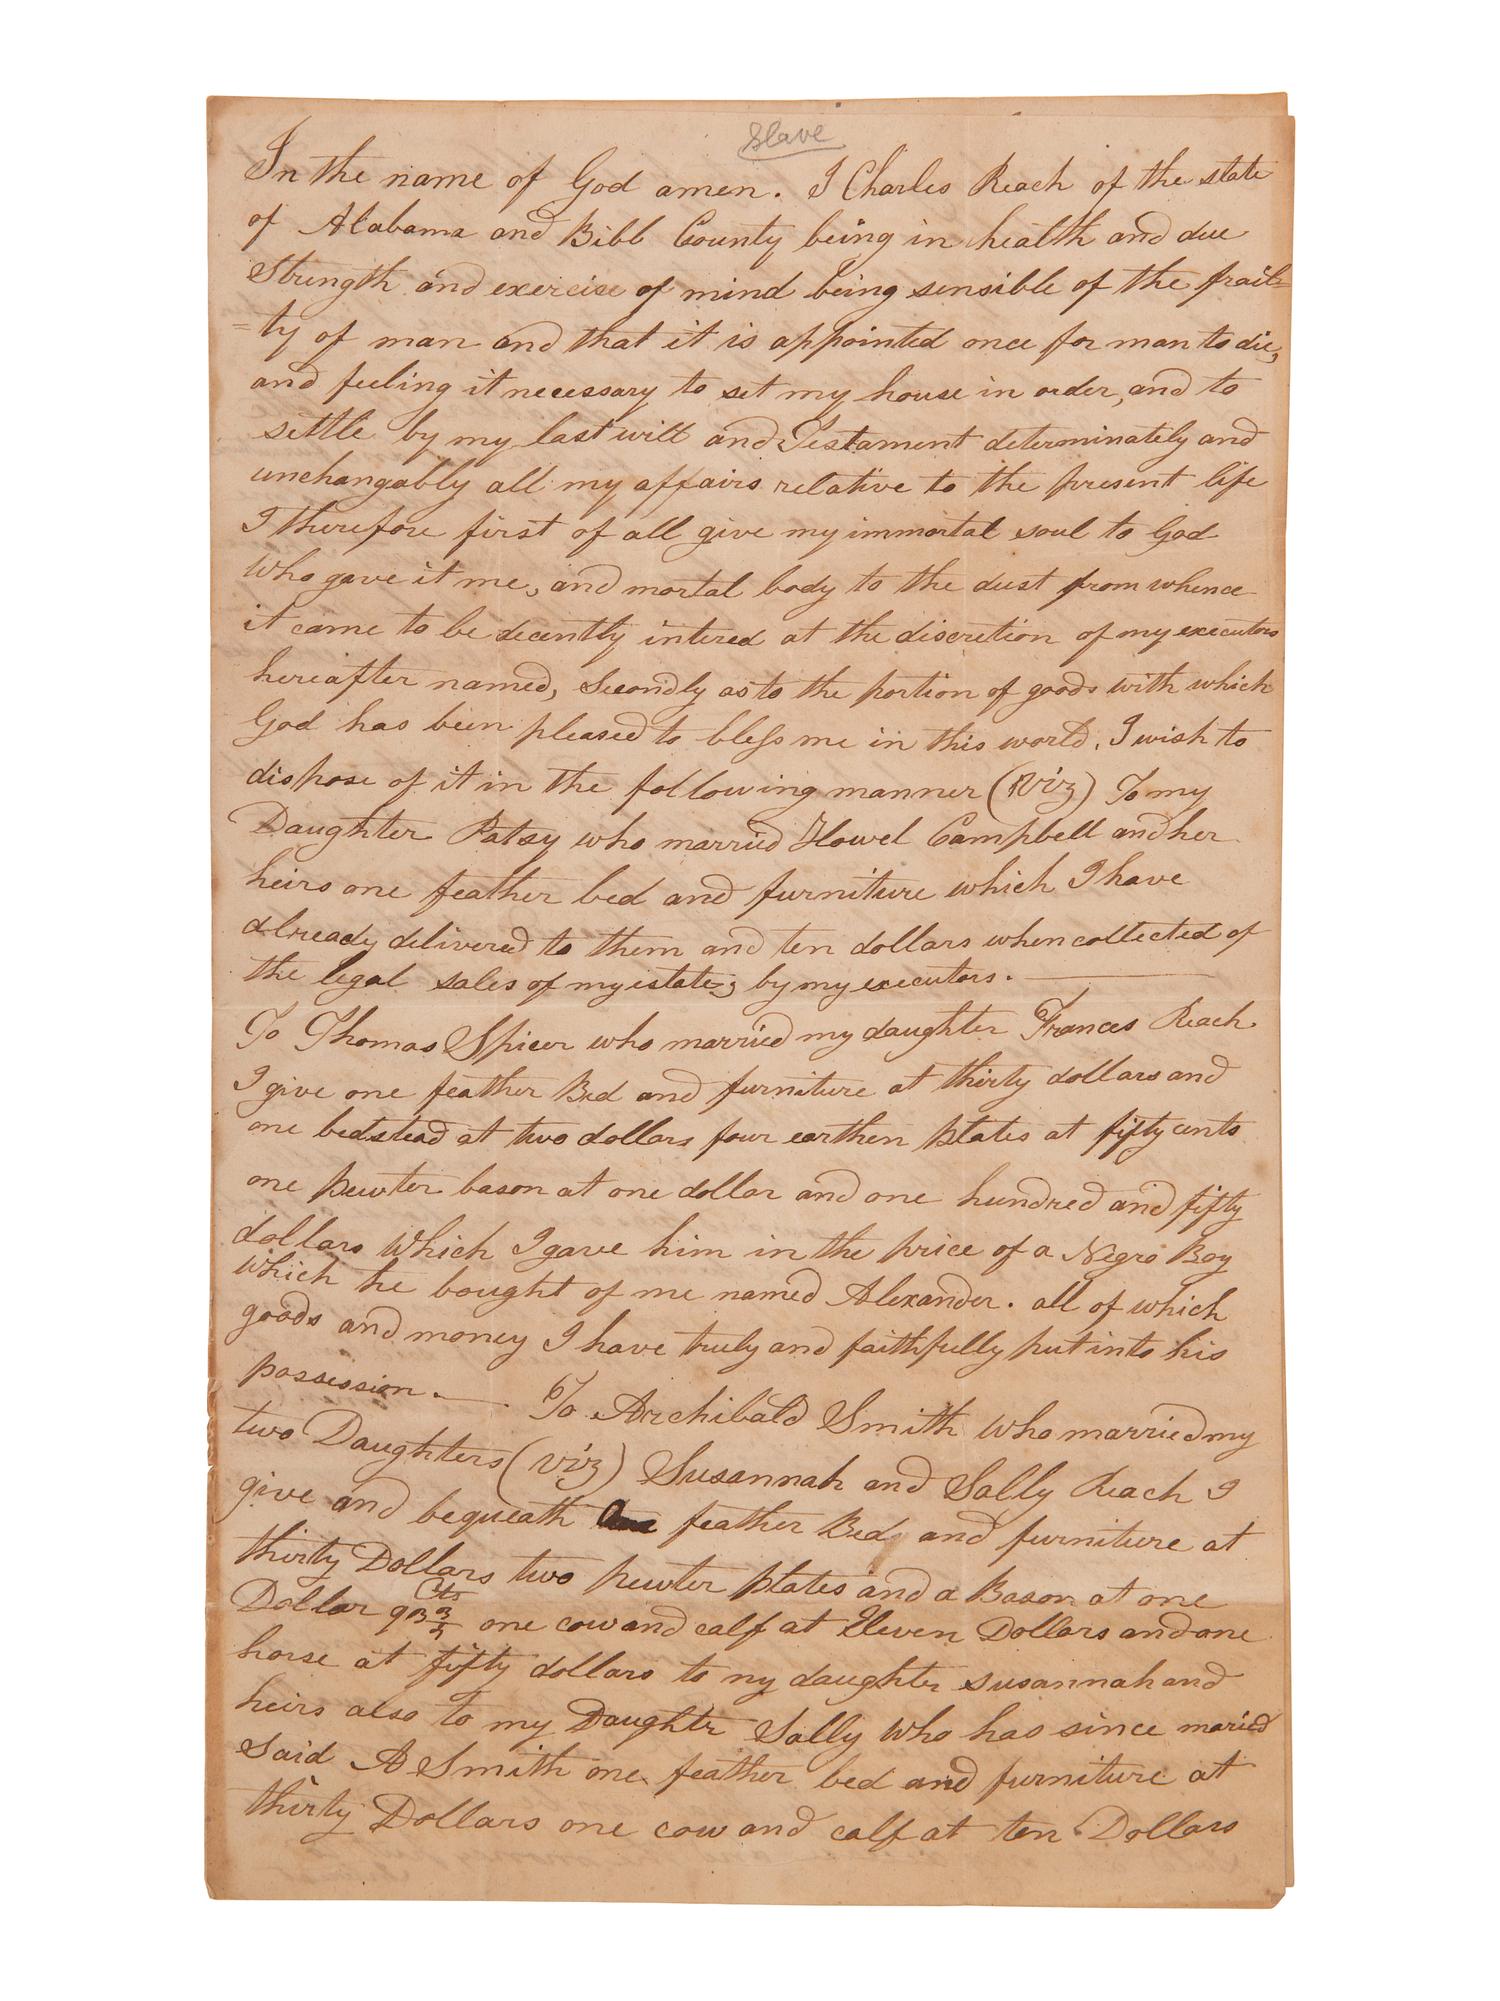 Slave
In the name of God amen. I Charles Reach of the state
of Alabama and Bibb County being in health and due
Strength and exercise of mind being sensible of the frail=
=ty of man and that it is appointed once for man to die,
and feeling it necessary to set my house in order, and to
settle by my last will and Testament determinately and
unchangably all my affairs relative to the present life
I therefore first of all give my immortal soul to God
Who gave it me, and mortal body to the dust from whence
it came to be decently intered at the discretion of my executors
hereafter named, Secondly as to the portion of goods with which
God has been pleased to bless me in this world, I wish to
dispose of it in the following manner (Viz) To my
Daughter Patsy who married Howel Campbell and her
heirs one feather bed and furniture which I have
already delivered to them and ten dollars when collected of
the legal sales of my estate; by my executors.
To Thomas Spicer who married my daughter Frances Reach
I give one feather Bed and furniture at thirty dollars and
one bedstead at two dollars four earthen plates at fifty cents
one pewter bason at one dollar and one hundred and fifty
dollars Which I gave him in the price of a Negro Boy
which he bought of me named Alexander. all of which
goods and money I have truly and faithfully put into his
possession. — To Archibald Smith who married my
two Daughters (viz) Susannah and Sally Reach I
give and bequeath feather Bed and furniture at
thirty Dollars two pewter plates and a Bason at one
Dollar Cts one cow and calf at Eleven Dollars and one
horse at fifty dollars to my daughter susannah and
heirs also to my Daughtr Sally Who has since maried
Said A Smith one feather bed and furniture at
thirty Dollars one cow and calf at ten Dollars